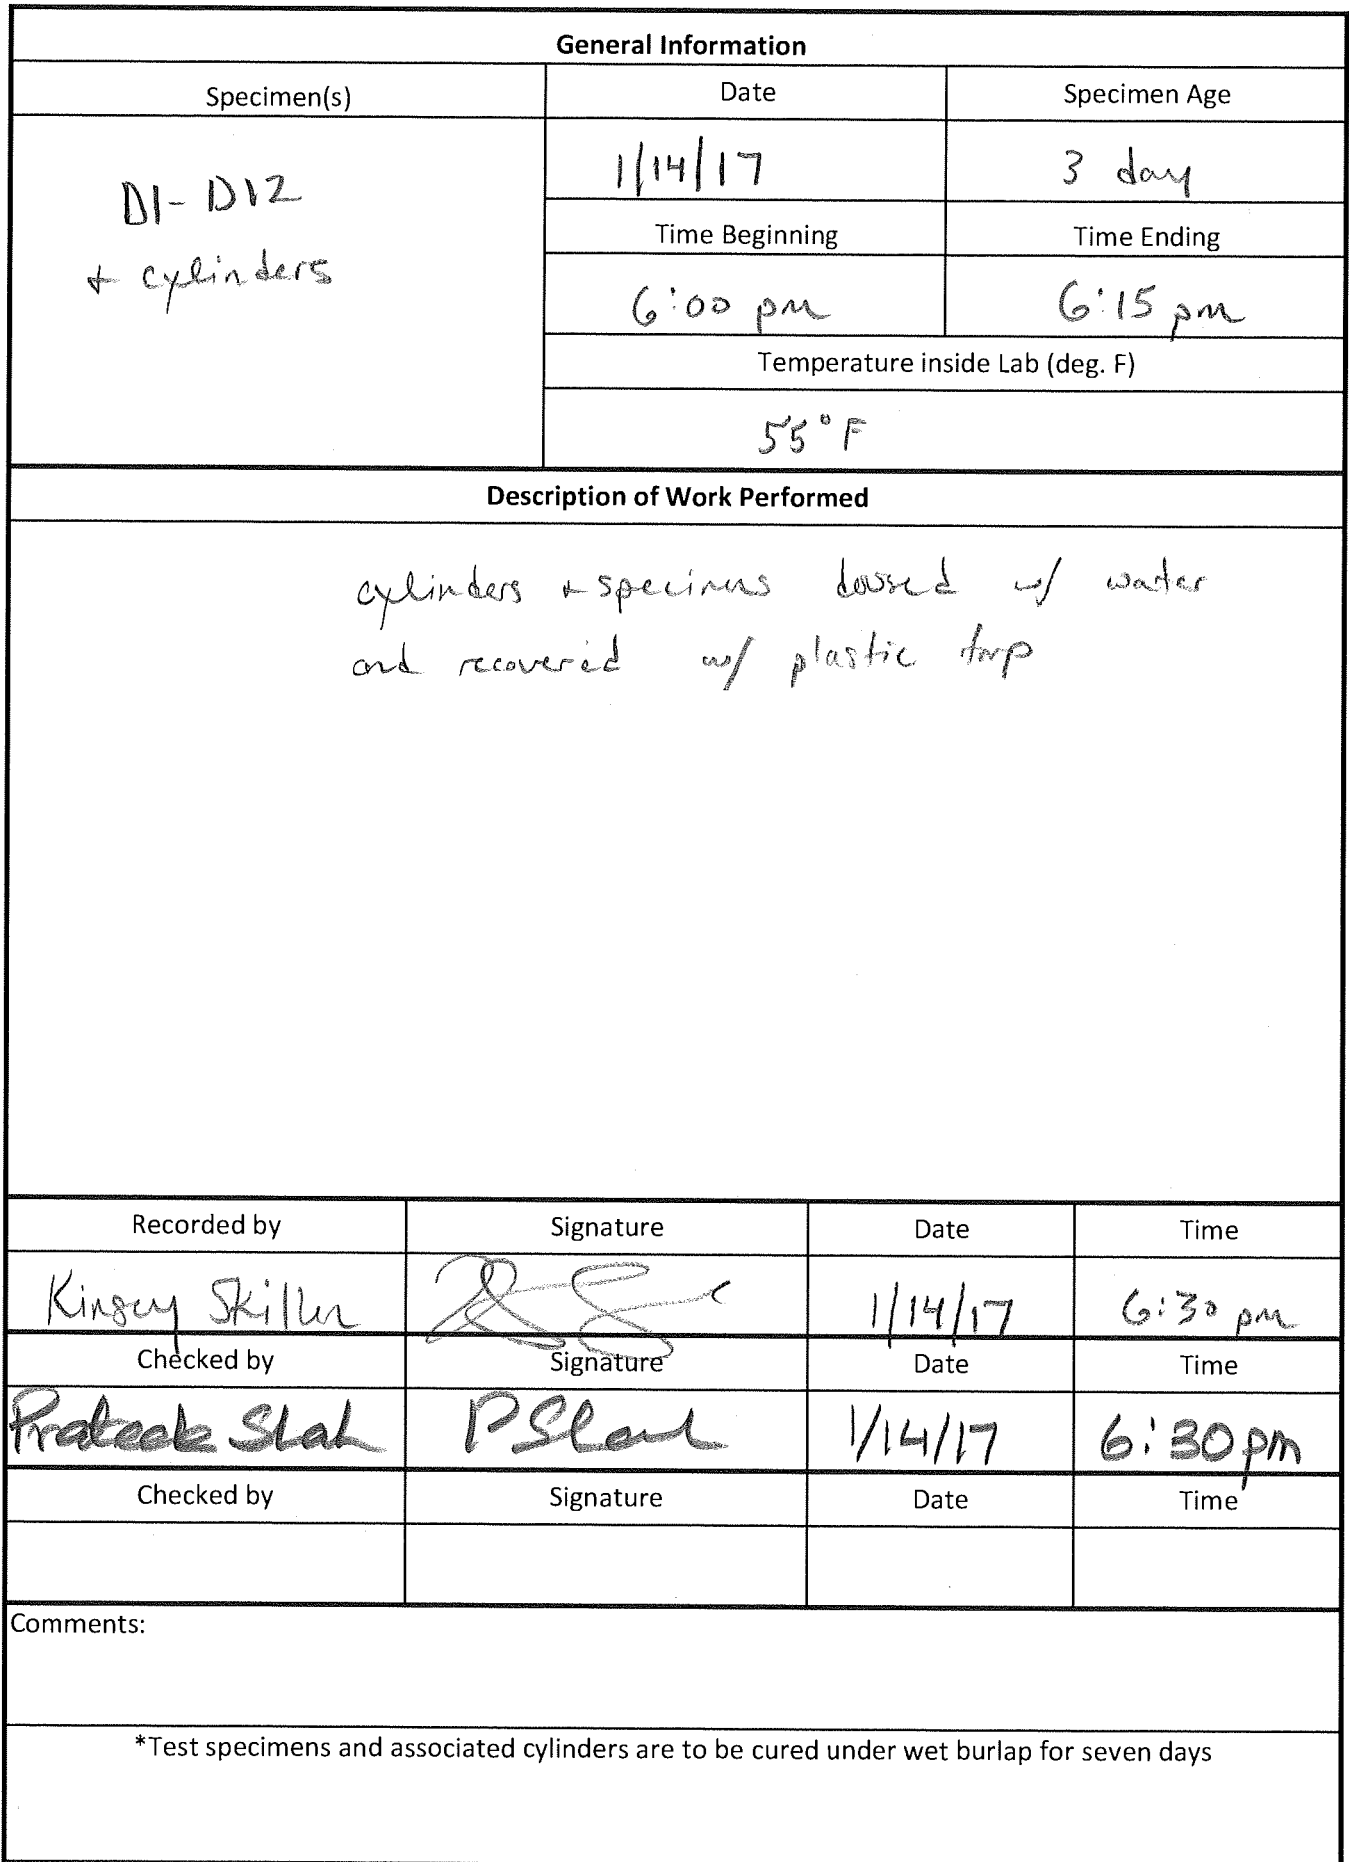 General Information
Specimen(s)
Date
Specimen Age
D1-D12
+ cylinders
1/14/17
3 day
Time Beginning
Time Ending
6:00 pm
6:15 pm
Temperature inside Lab (deg. F)
55°F
Description of Work Performed
cylinders + specimens doused w/ water
and recovered w/ plastic tarp
Recorded by
Signature
Date
Time
Kinsey Skillen
1/14/17
6:30 pm
Checked by
Signature
Date
Time
Prateek Shah
PShah
1/14/17
6:30pm
Checked by
Signature
Date
Time
Comments:
*Test specimens and associated cylinders are to be cured under wet burlap for seven days